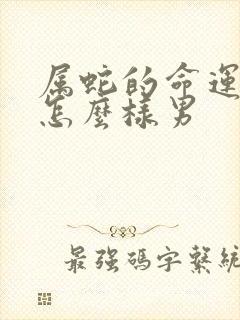 属蛇的命運
怎麼樣男
最強碼字繫統